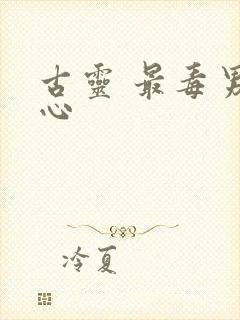 古靈 最毒男
心
冷夏